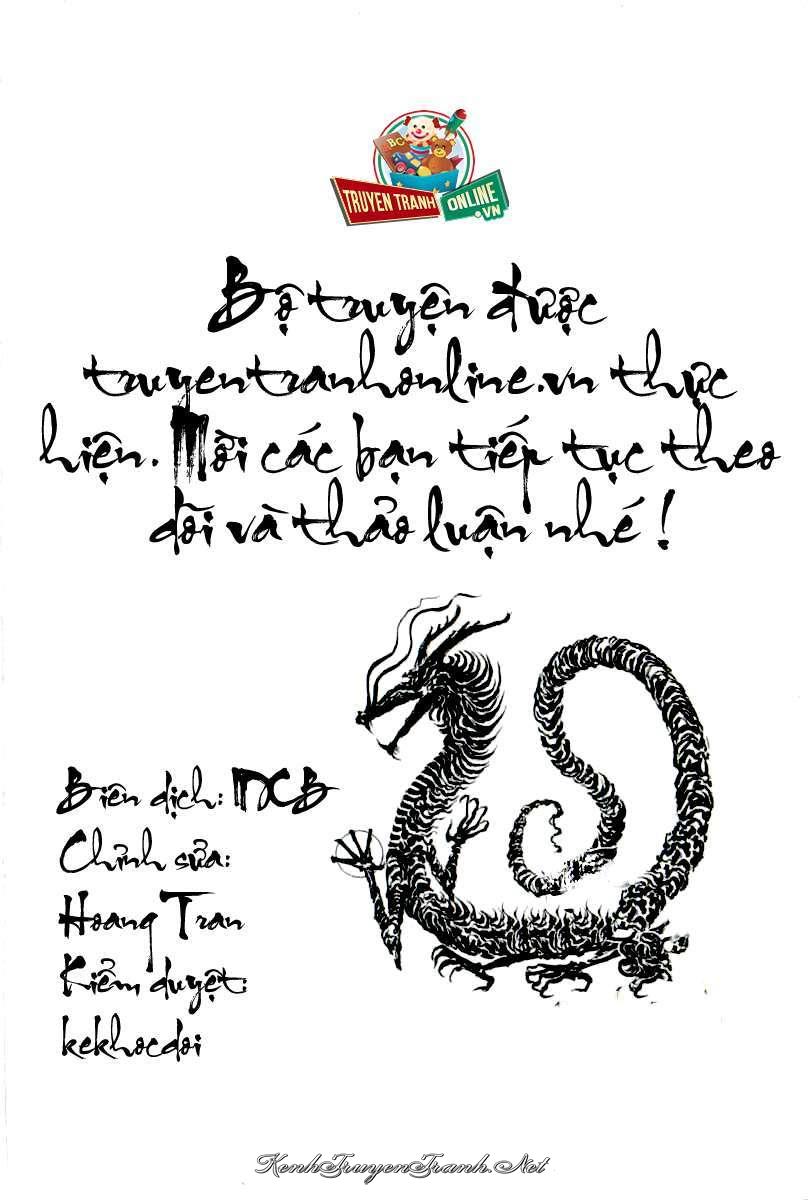 ABC
TRUYEN TRANH ONLINE.VN
Bộ truyện được
truyentranhonline.vn thực
hiện. Mời các bạn tiếp tục theo
dõi và thảo luận nhé !
Biên dịch:
Chỉnh sửa:
Hoang Tran
Kiểm duyệt:
kekhocdoi
KenhTruyenTranh.Net